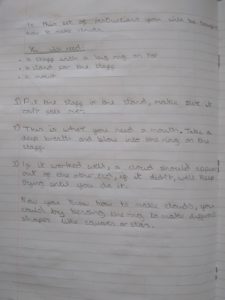 In this set of instructions you will be taught
how to make clouds.
You will need:
• a staff with a big ring on top
• a stand for the staff
• a mouth
1) Put the staff in the stand, make sure it
2) This is what you need a mouth. Take a
deep breath and blow into the ring on the
staff.
3) If it worked well, a cloud should appear
out of the other end, if it didn't, well keep
trying until you do it.
Now you know how to make clouds, you
could try bending the ring to make different
shapes like squares or stars.